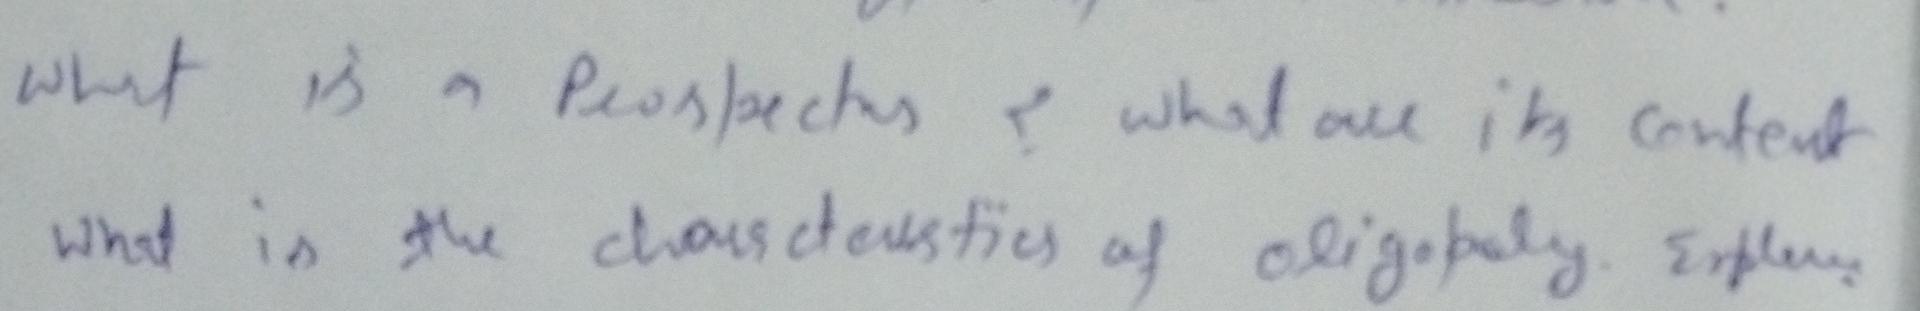 What is a Prospectus ? what are its content
What is the characteristics of oligopoly. Explain.